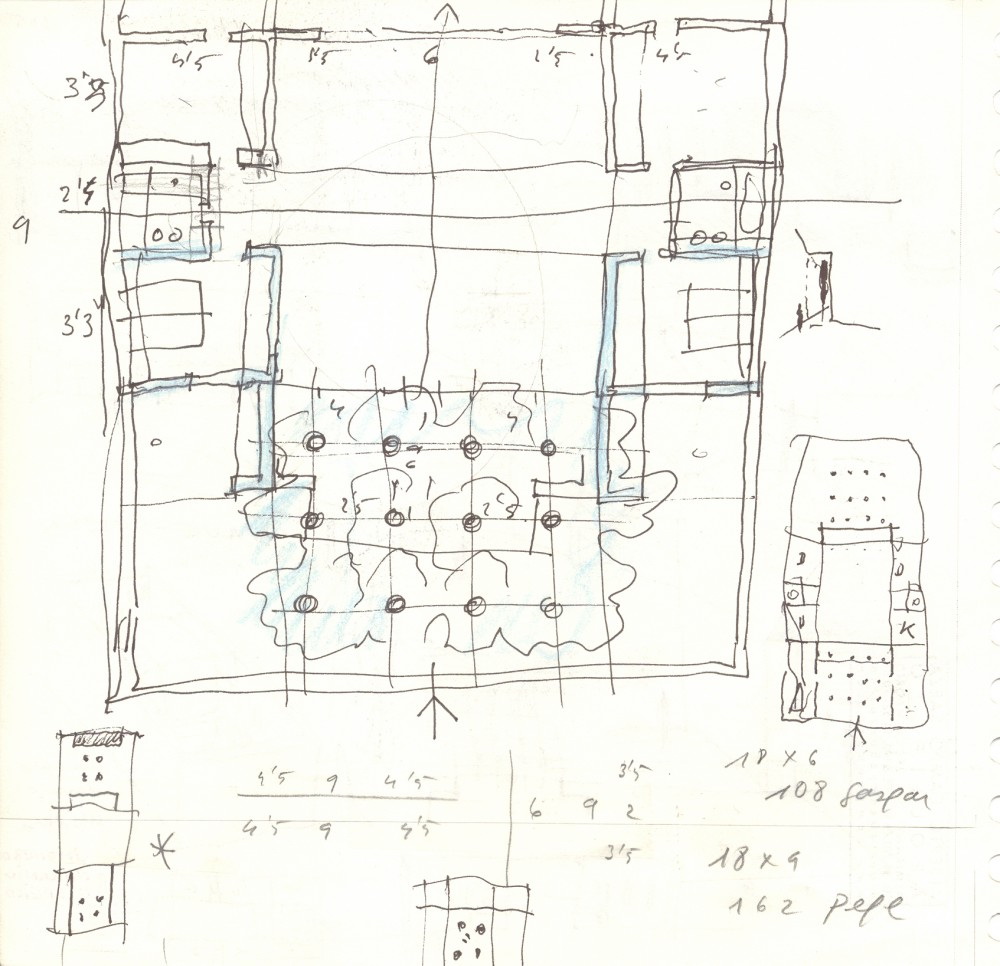 4'5 1'5 6 1'5 4'5
2'5
9
3'3
4 4
2'5 2'5
D D
K
4'5 9 4'5
4'5 9 4'5
3'5
6 9 2
3'5
18 x 6
108 Gaspar
18 x 9
162 pepe